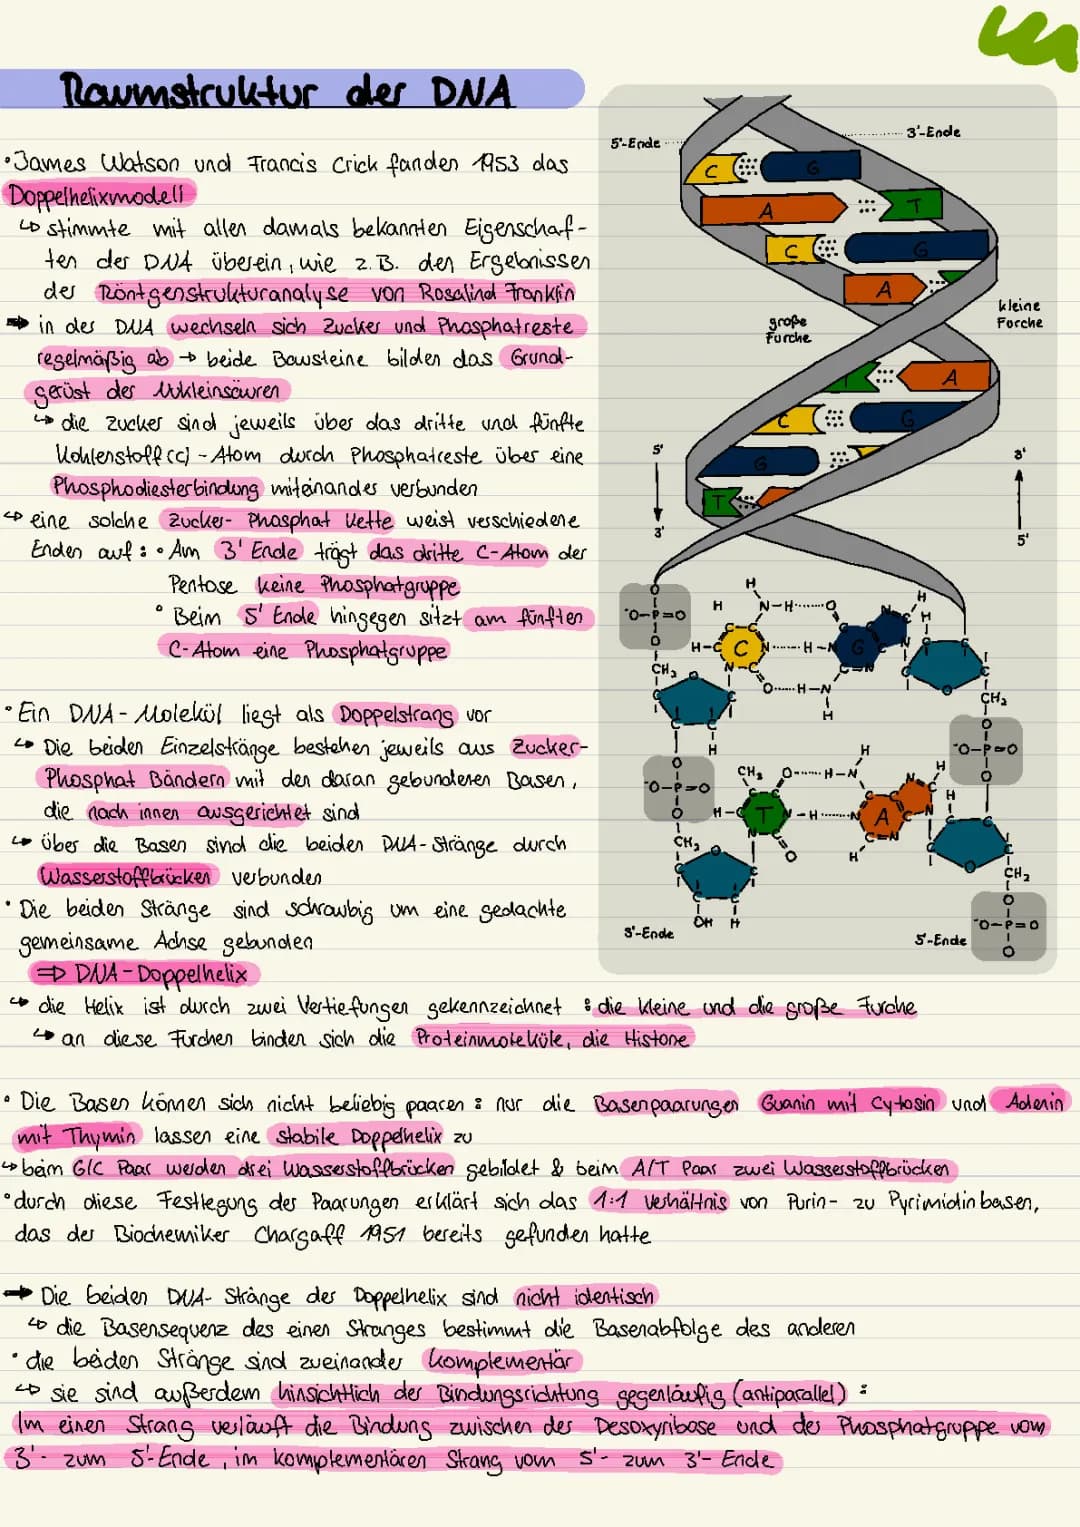 Raumstruktur der DNA
•James Watson und Francis Crick fanden 1953 das
Doppelhelixmodell
↳ stimmte mit allen damals bekannten Eigenschaf-
ten der DNA überein, wie z.B. den Ergebnissen
der Röntgenstrukturanalyse von Rosalind Franklin
➡ in der DNA wechseln sich Zucker und Phosphatreste
regelmäßig ab → beide Bausteine bilden das Grund-
gerüst der Nukleinsäuren
↳ die Zucker sind jeweils über das dritte und fünfte
Kohlenstoff (C) - Atom durch Phosphatreste über eine
Phosphodiesterbindung miteinander verbunden
↳ eine solche Zucker- Phosphat Kette weist verschiedene
Enden auf: • Am 3' Ende trägt das dritte C-Atom der
Pentose keine Phosphatgruppe
• Beim 5' Ende hingegen sitzt am fünften
C-Atom eine Phosphatgruppe
• Ein DNA-Molekül liegt als Doppelstrang vor
↳ Die beiden Einzelstränge bestehen jeweils aus Zucker-
Phosphat Bändern mit den daran gebundenen Basen,
die nach innen ausgerichtet sind
↳ über die Basen sind die beiden DNA-Stränge durch
Wasserstoffbrücken verbunden
• Die beiden Stränge sind schraubig um eine gedachte
gemeinsame Achse gebunden
⇒ DNA-Doppelhelix
↳ die Helix ist durch zwei Vertiefungen gekennzeichnet : die kleine und die große Furche
↳ an diese Furchen binden sich die Proteinmoleküle, die Histone
• Die Basen können sich nicht beliebig paaren : nur die Basenpaarungen Guanin mit Cytosin und Adenin
mit Thymin lassen eine stabile Doppelhelix zu
↳ beim G/C Paar werden drei Wasserstoffbrücken gebildet & beim A/T Paar zwei Wasserstoffbrücken
• durch diese Festlegung der Paarungen erklärt sich das 1:1 Verhältnis von Purin- zu Pyrimidinbasen,
das der Biochemiker Chargaff 1951 bereits gefunden hatte
➡ Die beiden DNA- Stränge der Doppelhelix sind nicht identisch
↳ die Basensequenz des einen Stranges bestimmt die Basenabfolge des anderen
• die beiden Stränge sind zueinander komplementär
↳ sie sind außerdem hinsichtlich der Bindungsrichtung gegenläufig (antiparallel) :
Im einen Strang verläuft die Bindung zwischen der Desoxyribose und der Phosphatgruppe vom
3'- zum 5'-Ende, im komplementären Strang vom 5'- zum 3'- Ende
5'-Ende
3'-Ende
C G
A T
C G
A
große
Furche
kleine
Furche
T A
C G
G
T
5'
3'
3'
5'
H
H N-H O N C H
⁻O-P=O
H-C C N H-N G
CH₂
O H-N
H
CH₂
⁻O-P=O
CH₃ O H-N
H
⁻O-P=O
H-C T N-H N A
CH₂
O
H
CH₂
OH H
3'-Ende
5'-Ende
⁻O-P=O